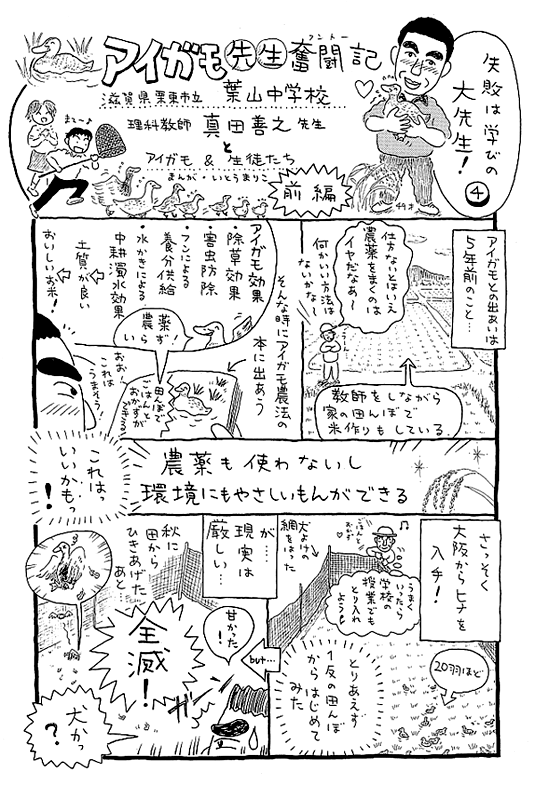 アイガモ先生奮闘記
フントー
滋賀県栗東市立 葉山中学校
理科教師 真田善之先生
と
アイガモ & 生徒たち
まんが・いとうまりこ
前編
まて〜っ
失敗は学びの
大先生!
④
44才
アイガモとの出あいは
5年前のこと…
仕方ないとはいえ
農薬をまくのは
イヤだなあ〜
何かいい方法は
ないかな〜
教師をしながら
家の田んぼで
米作りもしている
そんな時にアイガモ農法の
本に出あう
アイガモ効果
・除草効果
・害虫防除
・フンによる
養分供給
・水かきによる
中耕濁水効果
土質が良い
おいしいお米!
農薬
いらず!
田んぼで
ごはんと
おかずが
できる!
おお!
これは
うまそう!
これはっ
いいかもっ
!
農薬も使わないし
環境にもやさしいもんができる
さっそく
大阪からヒナを
入手!
ごはん
おかず
♪
犬よけの
網をはった
うまく
いったら
学校の
授業でも
とり入れ
よう!
20羽ほど
とりあえず
1反の田んぼ
からはじめて
みた
が…
現実は
厳しい…
but…
甘かった
!
ガーン
秋に
田から
ひきあげた
あと
全滅!
犬かっ
?